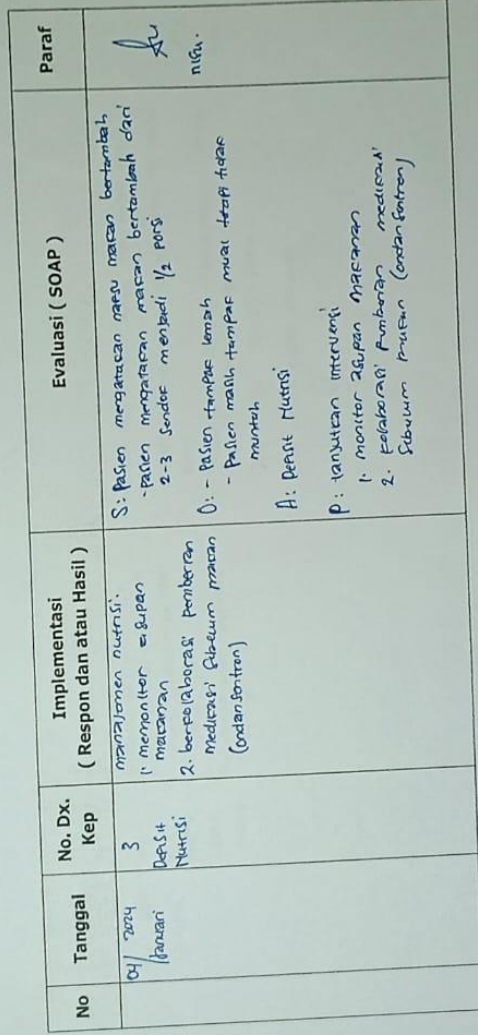 No
Tanggal
No. Dx.
Kep
Implementasi
( Respon dan atau Hasil )
Evaluasi ( SOAP )
Paraf
04/ 2024
Januari
3
Defisit
Nutrisi
manajemen nutrisi.
1. memonitor asupan
makanan
2. berkolaborasi pemberian
medikasi sebelum makan
(ondansentron)
S: Pasien mengatakan napsu makan bertambah
- pasien mengatakan makan bertambah dari
2-3 sendok menjadi 1/2 porsi
O: - Pasien tampak lemah
- Pasien masih tampak mual tetapi tidak
muntah
A: Defisit Nutrisi
P: lanjutkan intervensi
1. monitor asupan makanan
2. kolaborasi pemberian medikasi
sebelum makan (ondansentron)